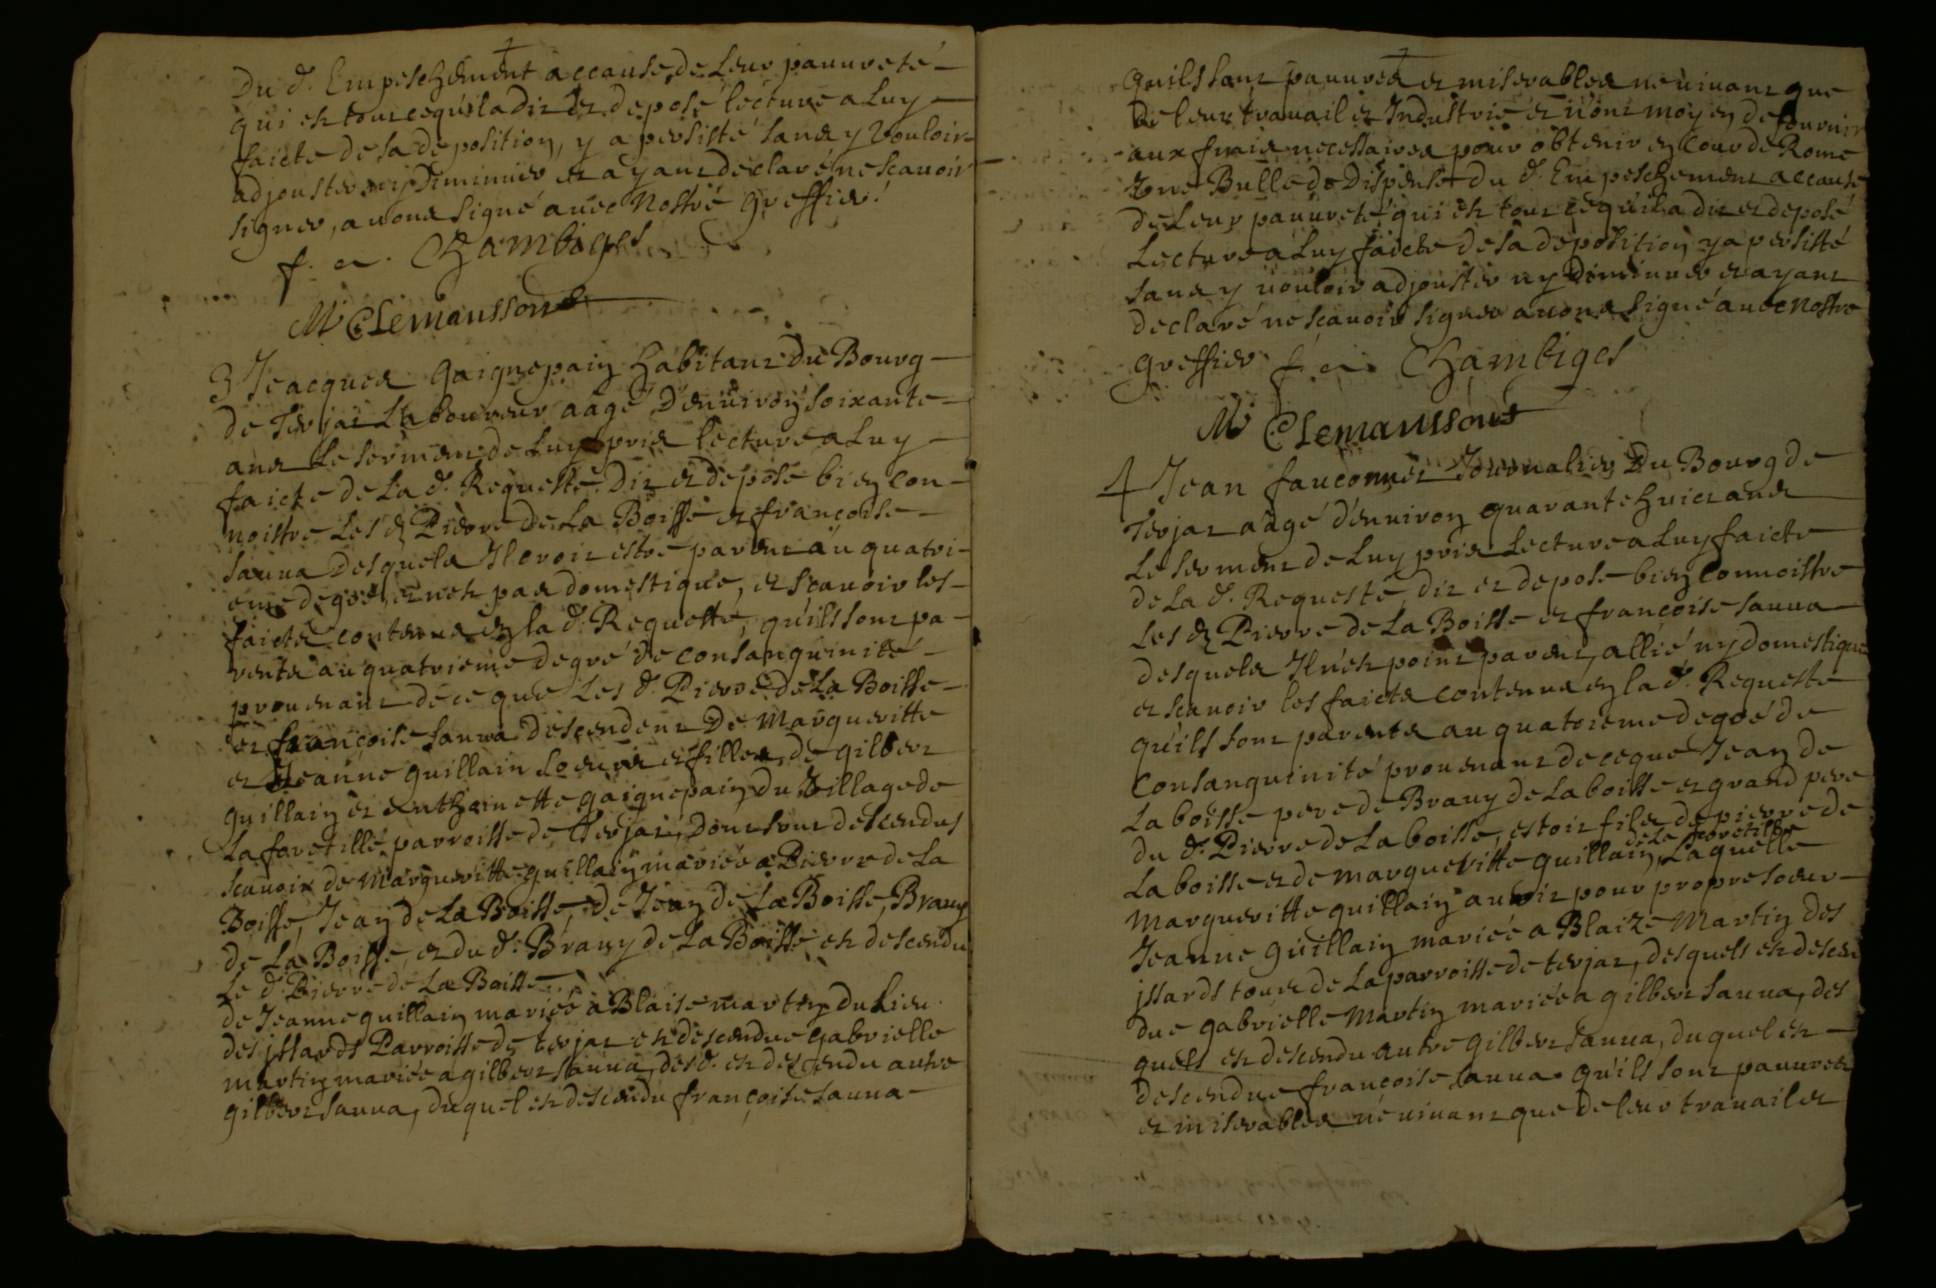 Du d. Empeschement accause de Leur pauureté
qui est tout ce qu'il a dit et deposé lecture a Luy
faicte de sa deposition, y a persisté sans y Vouloir
adjouster ny Diminuer et ayant declaré ne scauoir
signer, auons signé auec Nostre greffier.
f. a. Chambiges
M Clemansson
3 Jeacques gaignepain habitant Du Bourg
de Terjat Laboureur aagé D'enuiron soixante
ans Le serment de Luy pris lecture a Luy
faicte de La d. Requeste Dit et deposé bien con-
noistre Les ds Pierre de La Boisse et françoise
sauua desquels Il croit estre parent au quatri-
eme degré, et n'est pas domestique, et scauoir les
faicts contenus en la d. Requeste, qu'ils sont pa-
rents au quatrieme degré de consanguinité
prouenant de ce que Les d. Pierre de La Boisse
et françoise sauua descendent De Margueritte
et Jeanne guillain soeurs et filles, de gilbert
guillain et anthoinette gaignepain du Village de
La faretille parroisse de Terjat, Dont sont descendus
scauoir de Margueritte guillain mariée a Pierre de La
Boisse, Jean de La Boisse, de Jean de La Boisse, Brauy
de La Boisse et du d. Brauy de La Boisse est descendu
Le d. Pierre de La Boisse
de Jeanne guillain mariée a Blaise martin du Lieu
des jssards Parroisse de terjat est descendue gabrielle
martin mariée a gilbert sauua, desd. est descendu autre
gilbert sauua, duquel est descendu françoise sauua
quils sont pauures et miserables ne uiuant que
de leur trauail et Industrie et n'ont moyen de fournir
aux frais necessaires pour obtenir en Cour de Rome
Vne Bulle de Dispense du d. Empeschement accause
de Leur pauureté qui est tout ce qu'il a dit et deposé
Lecture a Luy faicte de sa deposition y a persisté
sans y uouloir adjouster ny diminuer et ayant
declaré ne scauoir signer auons signé auec Nostre
greffier f. a. Chambiges
M Clemansson
4 Jean fauconnier Journalier Du Bourg de
Terjat aagé d'enuiron quarante huict ans
Le serment de Luy pris Lecture a Luy faicte
de La d. Requeste, dit et depose bien Connoistre
Les ds Pierre de La Boisse et françoise sauua
desquels Il n'est point parent, allié ny domestique
et scauoir les faicts contenus en la d. Requeste
qu'ils sont parents au quatrieme degré de
Consanguinité prouenant de ce que Jean de
La boisse pere de Brauy de La boisse et grand pere
du d. Pierre de La boisse, estoit fils de pierre de
La boisse et de margueritte guillain, de Le faretille Laquelle
Margueritte guillain auoit pour propre soeur
Jeanne guillain mariée a Blaize Martin des
jssards tous de La parroisse de terjat, desquels est descen
due gabrielle Martin mariée a gilbert sauua, des
quels est descendu autre gilbert sauua, duquel est
descendue françoise sauua. qu'ils sont pauures
et miserables ne uiuant que de leur trauail et